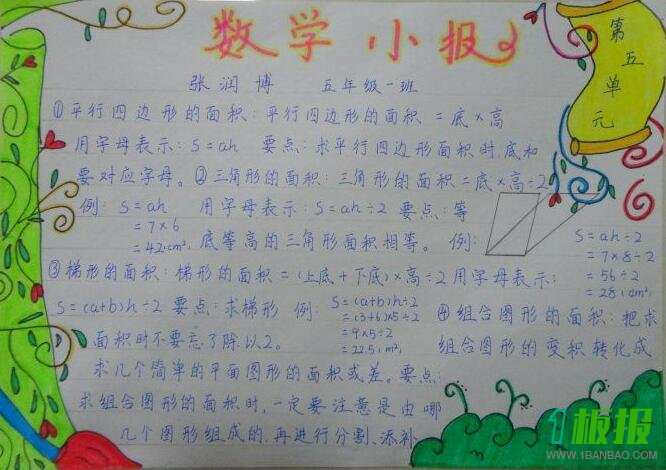 数学小报
第五单元
张润博 五年级一班
①平行四边形的面积:平行四边形的面积=底×高
用字母表示:S=ah 要点:求平行四边形面积时,底和
要对应字母。②三角形的面积:三角形的面积=底×高÷2
例:S=ah 用字母表示:S=ah÷2 要点:等
=7×6
=42(cm²) 底等高的三角形面积相等。例:
S=ah÷2
=7×8÷2
=56÷2
=28(dm²)
③梯形的面积:梯形的面积=(上底+下底)×高÷2用字母表示:
S=(a+b)h÷2 要点:求梯形 例:S=(a+b)h÷2
=(3+6)×5÷2
=9×5÷2
=22.5(m²)
面积时不要忘了除以2。
④组合图形的面积:把求
组合图形的变积转化成
求几个简单的平面图形的面积或差。要点:
求组合图形的面积时,一定要注意是由哪
几个图形组成的,再进行分割、添补
1板报
WWW.1BANBAO.COM